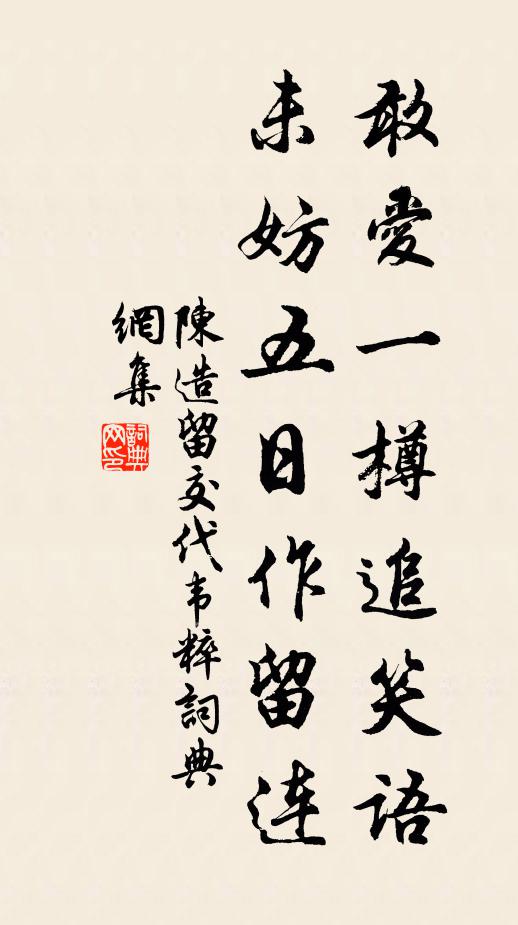 敢愛一樽追笑語
未妨五日作留連
陳造留交代韦粹詞典
網集
詞典網印